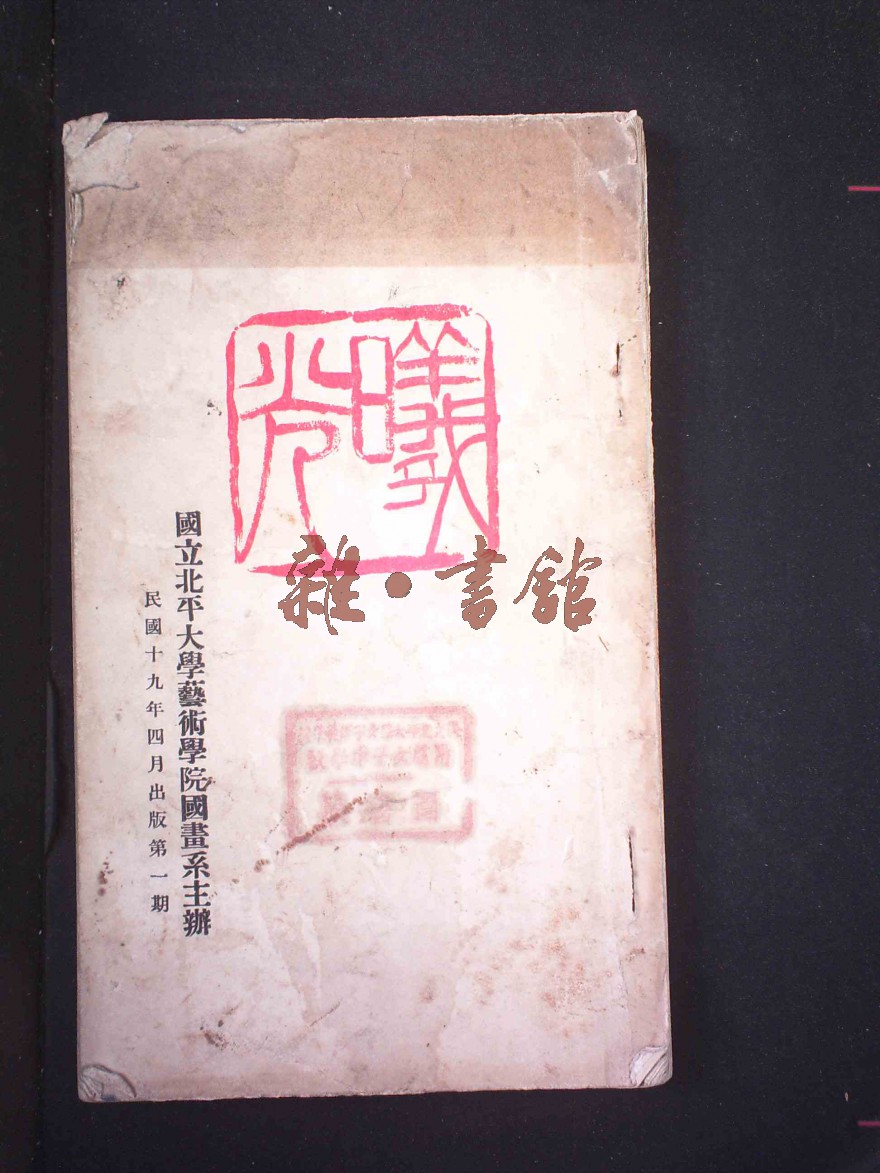 曦光
國立北平大學藝術學院國畫系主辦
民國十九年四月出版第一期
雜·書館